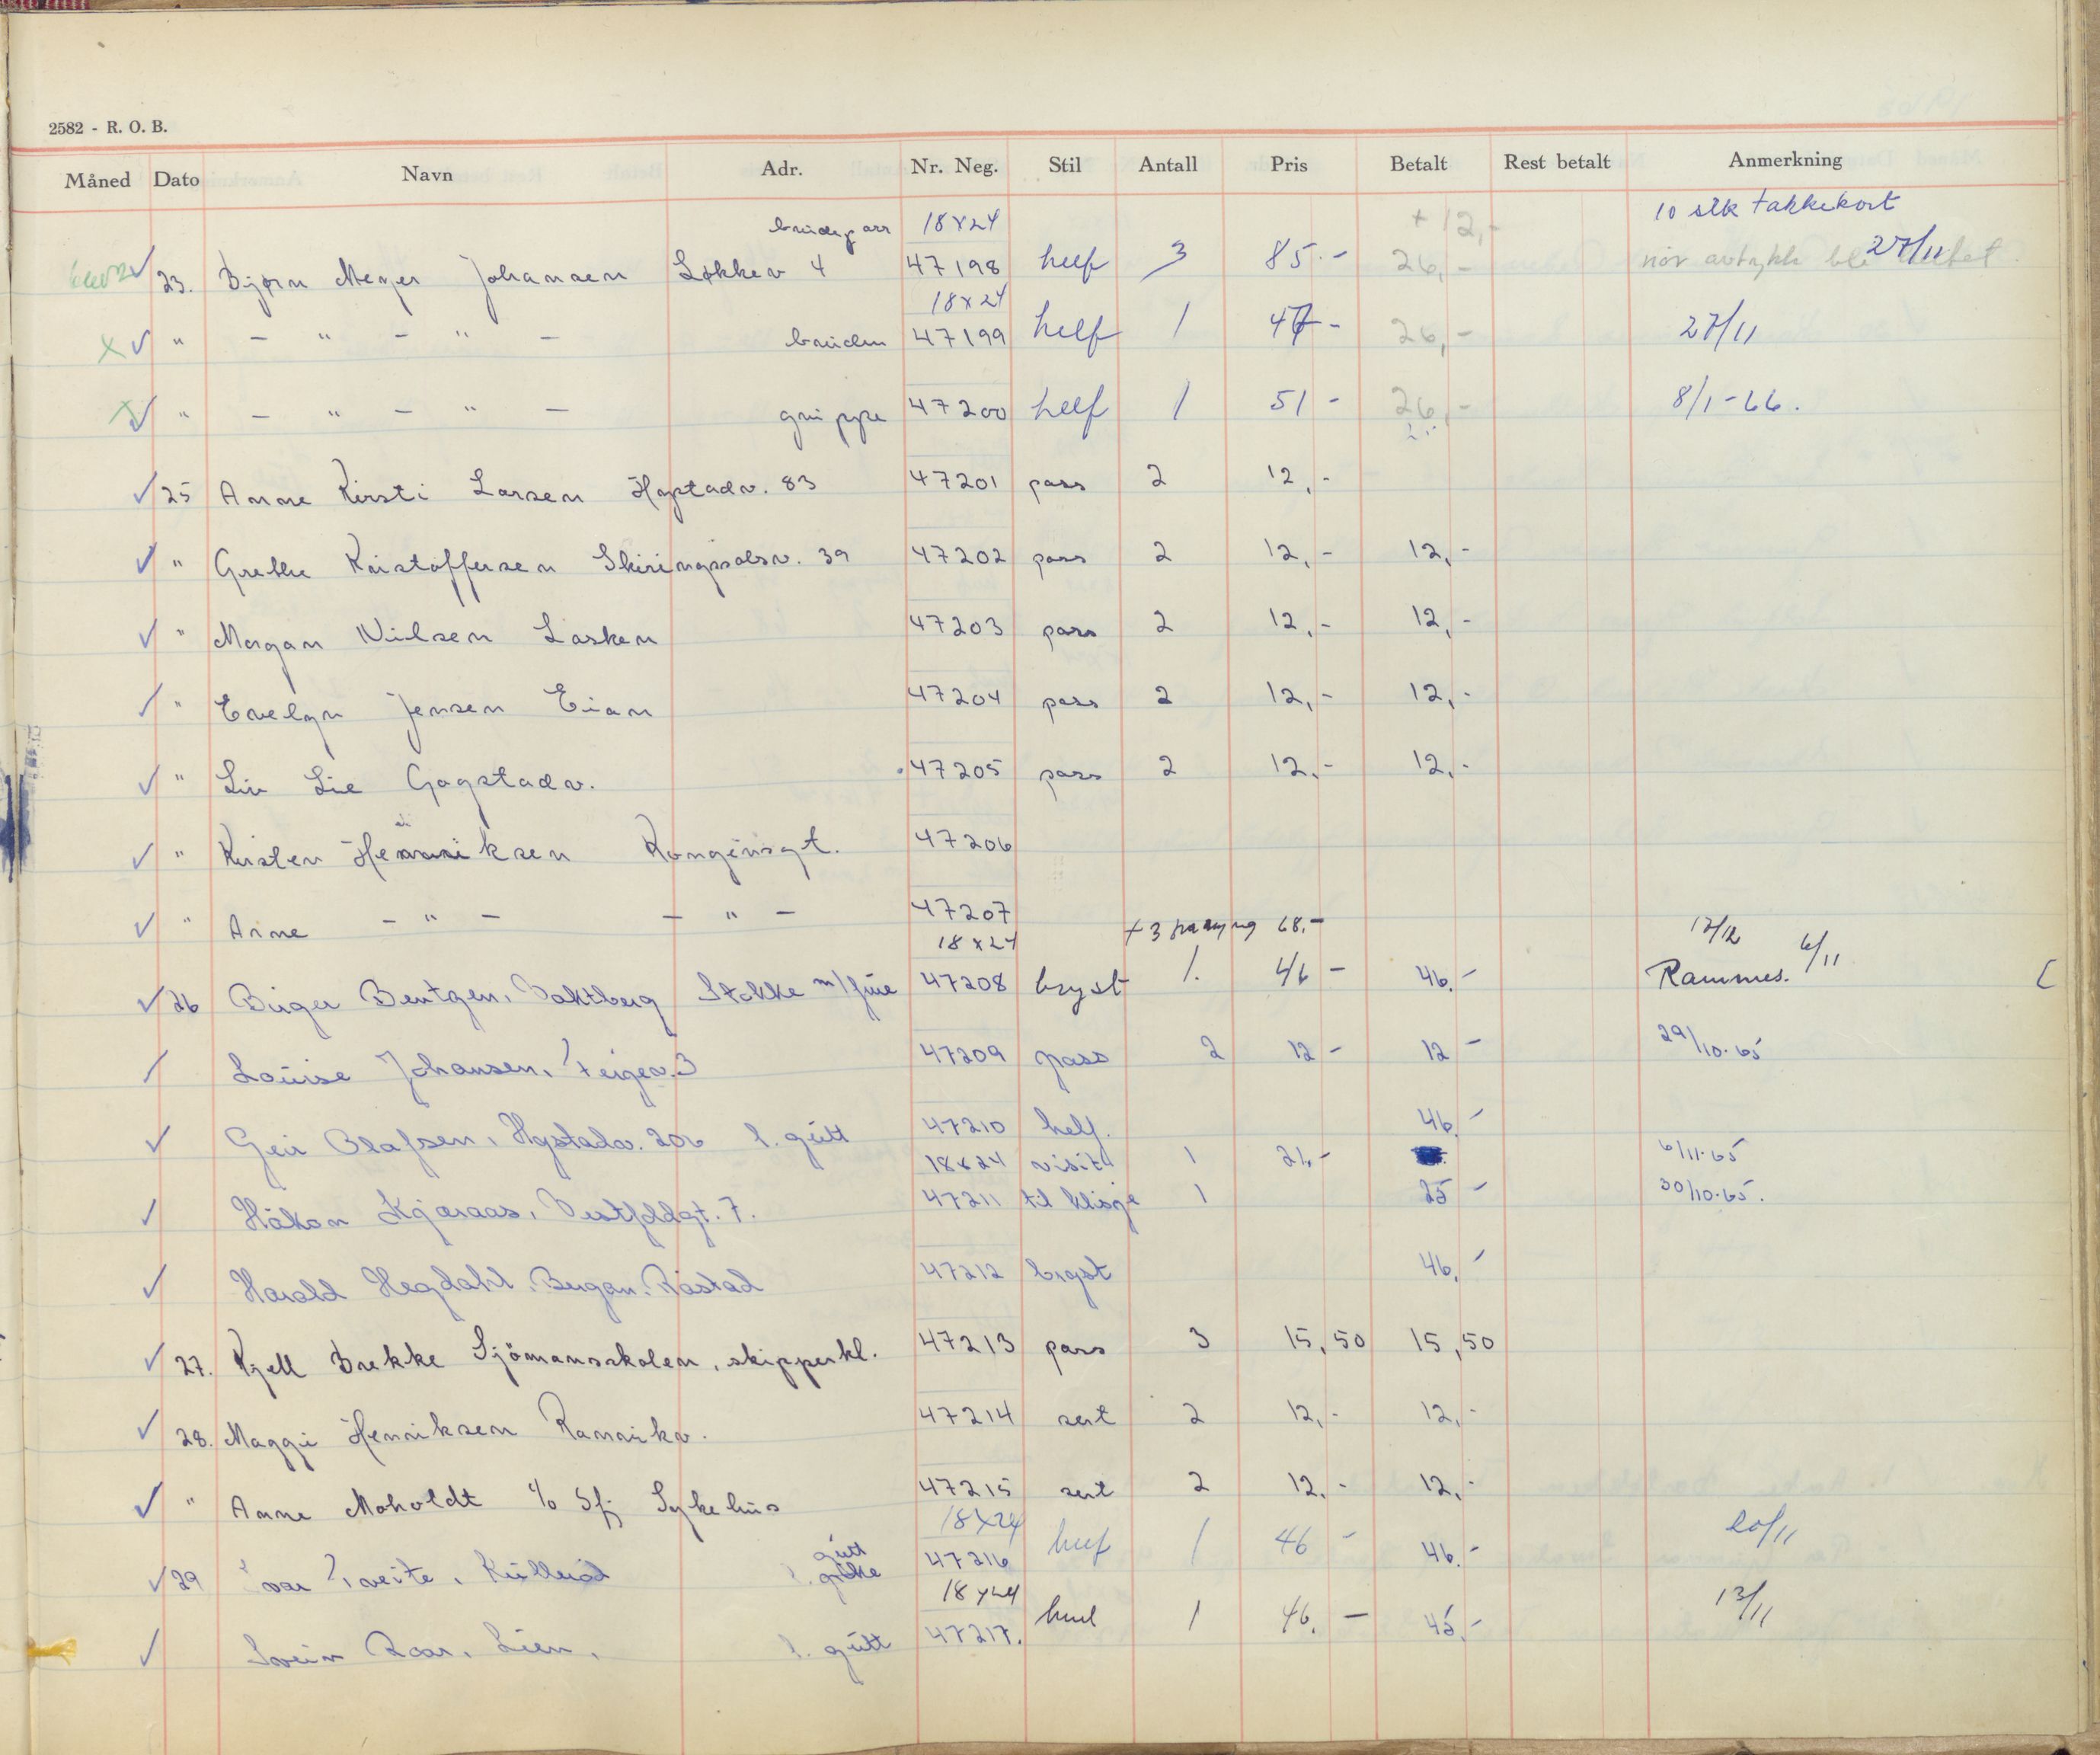 2582 - R. O. B.
Måned Dato Navn Adr. Nr. Neg. Stil Antall Pris Betalt Rest betalt Anmerkning
brudepar 18x24 + 12,- 10 stk takkekort
23. Bjørn Meyer Johansen Løkkev 4 47198 3 85.- 26,- 27/11
18x24
" - " - " - bruden 47199 1 47- 26,- 27/11
" - " - " - gruppe 47200 1 51- 26,- 8/1-66.
25 Anne Kirsti Larsen Hystadv. 83 47201 pass 2 12,-
" Grethe Kristoffersen Skiringssalsv. 39 47202 pass 2 12,- 12,-
" Morgan Nilsen Lasken 47203 pass 2 12,- 12,-
" Evelyn Jensen Eian 47204 pass 2 12,- 12,-
" Liv Lie Gogstadv. 47205 pass 2 12,- 12,-
" Kirsten Henriksen Kongensgt. 47206
" Arne - " - - " - 47207
18x24 + 3 68.- 6/11
26 Birger Bentzen, Stokke m/frue 47208 bryst 1. 46- 46.- Rammes.
Louise Johansen, 47209 pass 2 12- 12- 29/10.65
Geir Olafsen, Hystadv. 20b l. gutt 47210 helf. 46.-
18x24 visit 1 6/11.65
Håkon Kjæraas, Vestfoldgt. 7. 47211 til klisje 1 25- 30/10.65.
Harald Hegdahl, Råstad 47212 bryst 46,-
27. Kjell Brekke Sjömansskolen, skipperkl. 47213 pass 3 15,50 15,50
28. Maggi Henriksen Ranvikv. 47214 sert 2 12,- 12,-
" Anne Moholdt c/o Sf. Sykehus 47215 sert 2 12,- 12,-
18x24
29 Ivar Tveite, gutt 47216 1 46- 46.- 20/11
18x24
Svein Roar, Lien, l. gutt 47217. 1 46.- 45,- 13/11